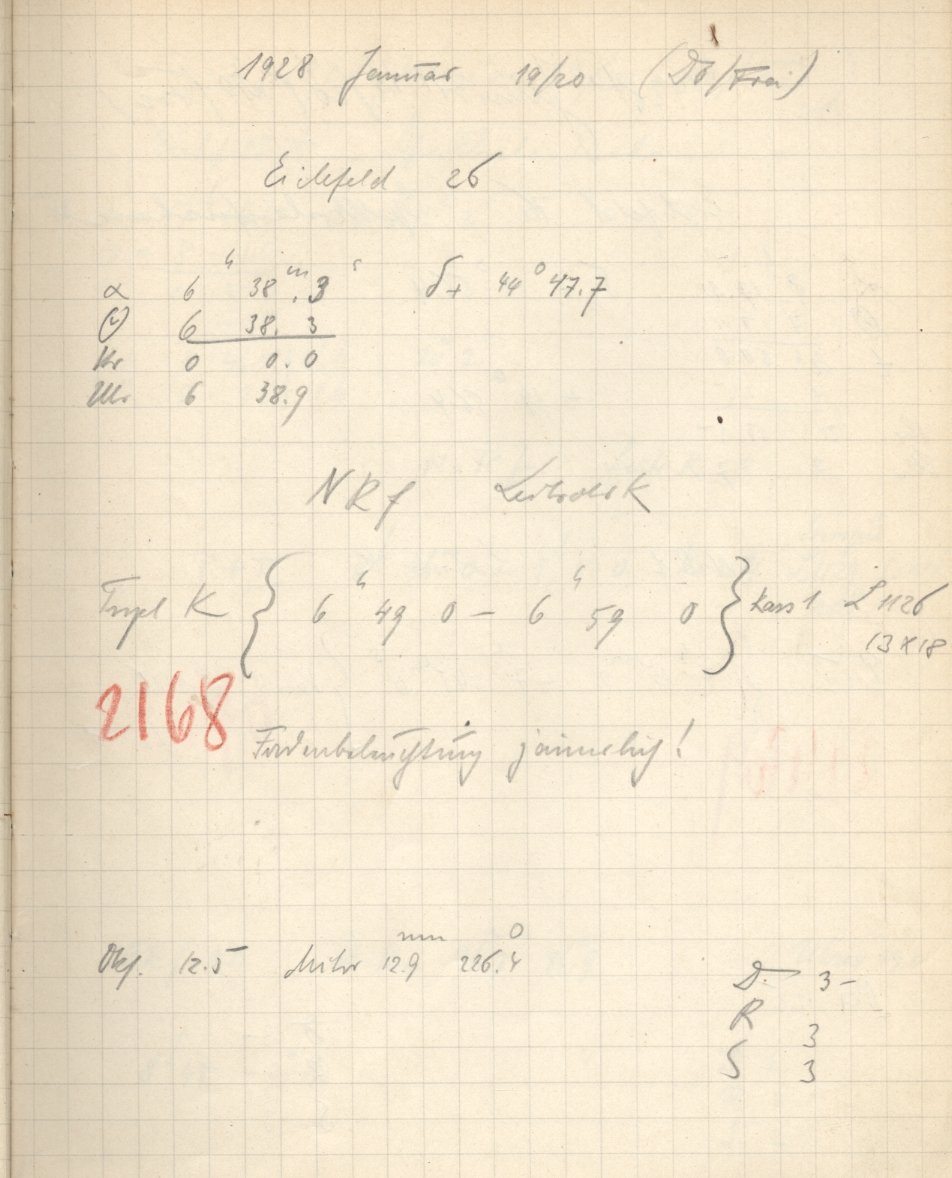 1928 Januar 19/20 (Dö/Frei)
Eichfeld 26
α 6 h 38 m . 3 s δ + 44° 47.7
6 38. 3
Kr 0 0.0
Uhr 6 38.9
NRf
Tripl K { 6 h 49 0 – 6 h 59 0 } Kass 1 L 1126
13 x 18
2168
Fadenbeleuchtung jämmerlich!
Okf. 12.5 Mikr 12.9 mm 226.4°
D. 3–
R 3
S 3